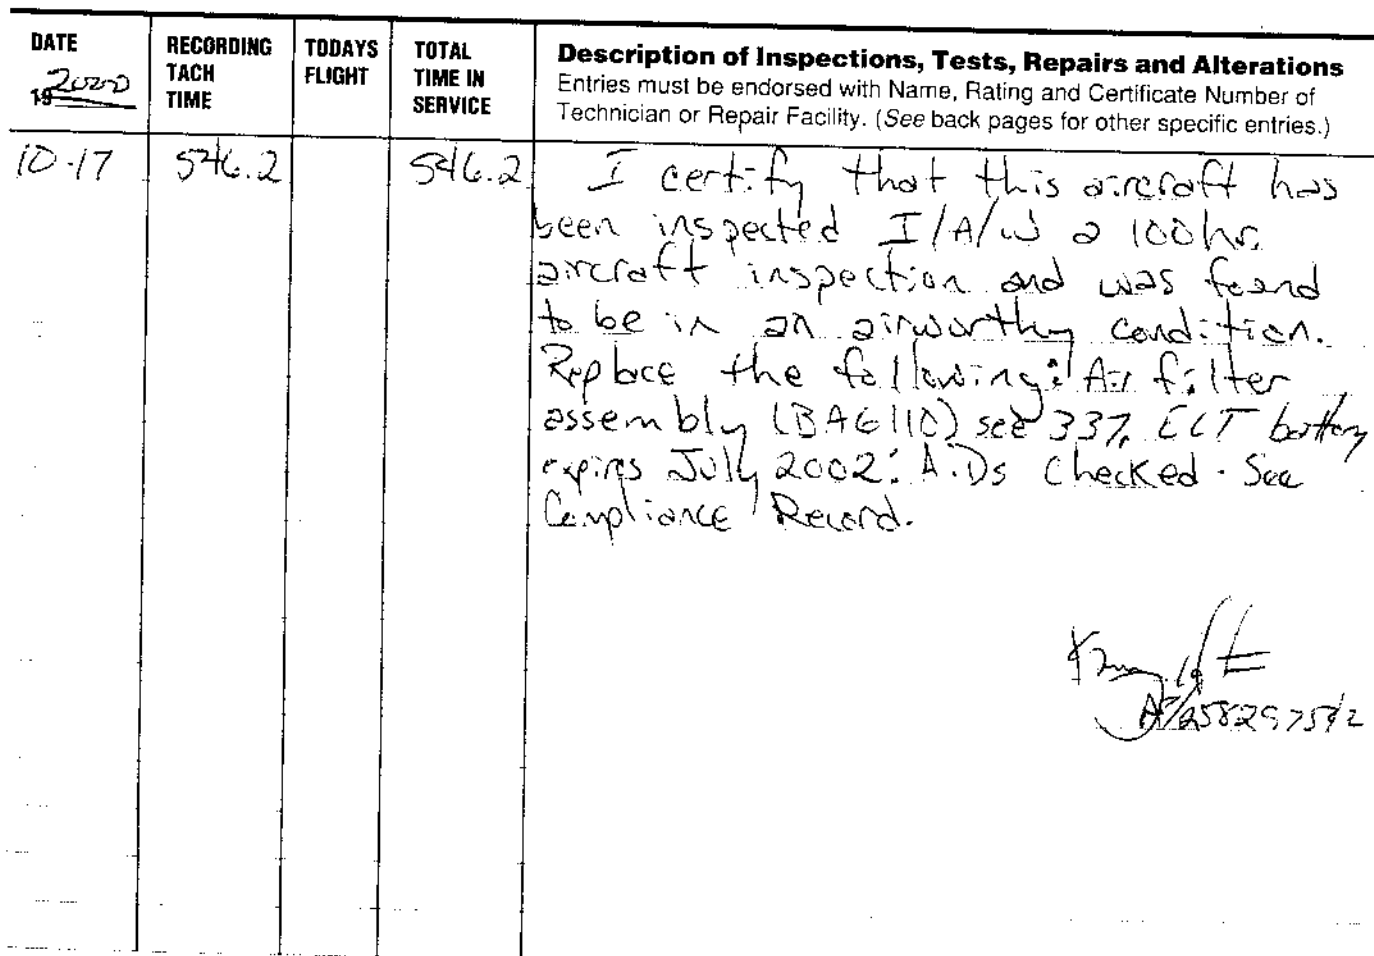 DATE
19 2000
RECORDING
TACH
TIME
TODAYS
FLIGHT
TOTAL
TIME IN
SERVICE
Description of Inspections, Tests, Repairs and Alterations
Entries must be endorsed with Name, Rating and Certificate Number of
Technician or Repair Facility. (See back pages for other specific entries.)
10-17 546.2 546.2 I certify that this aircraft has
been inspected I/A/W a 100 hr.
aircraft inspection and was found
to be in an airworthy condition.
Replace the following: Air filter
assembly (BA6110) see 337, ELT battery
expires July 2002: A.Ds checked. See
Compliance Record.